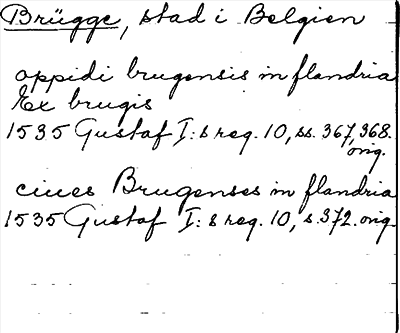 Brügge, stad i Belgien
oppidi brugensis in flandria
Ex brugis
1535 Gustaf I:s reg. 10, ss. 367, 368.
orig.
ciues Brugenses in flandria
1535 Gustaf I:s reg. 10, s. 372. orig.